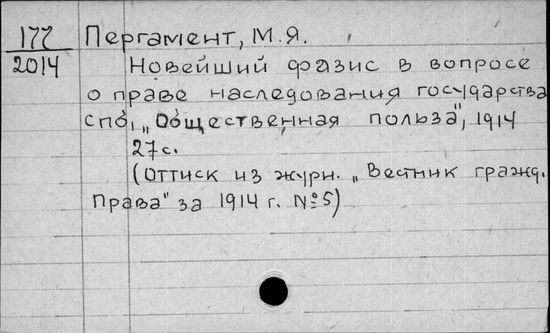 177 Пергамент, М.Я.
2014 Новейший фазис в вопросе
о праве наследования государства
спб, „Общественная польза", 1914
27с.
(Оттиск из журн. „Вестник гражд.
Права" за 1914 г. №5)